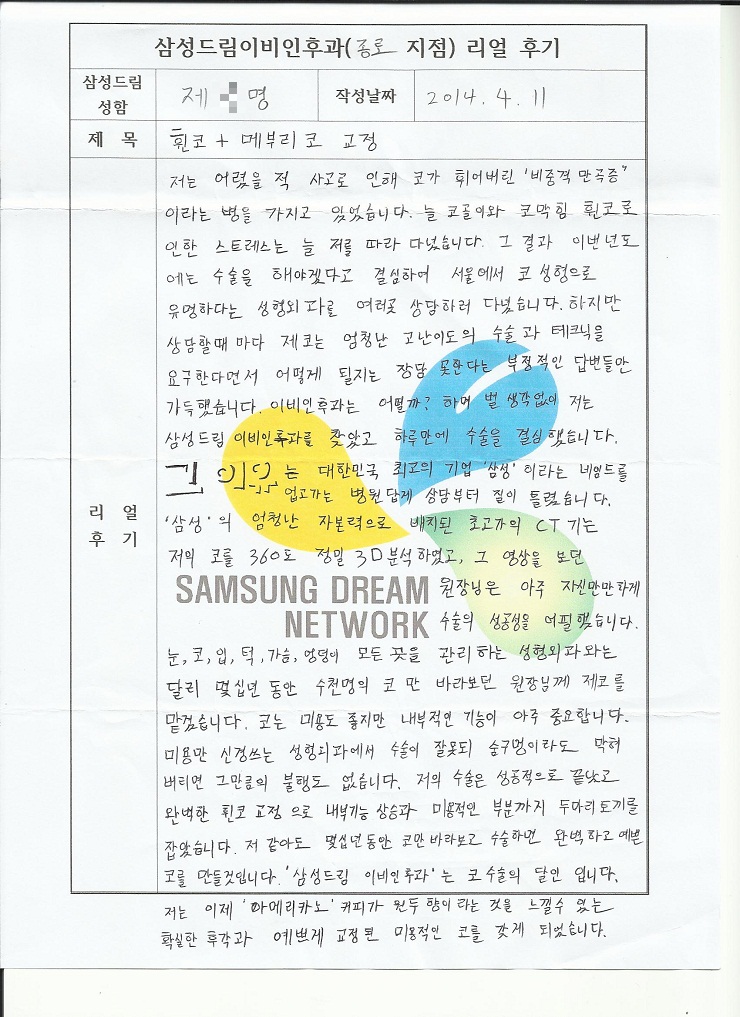 삼성드림이비인후과(종로 지점) 리얼 후기
삼성드림 성함 제 명 작성날짜 2014. 4. 11
제 목 휜코 + 메부리코 교정
리 얼 후 기
저는 어렸을 적 사고로 인해 코가 휘어버린 '비중격 만곡증"
이라는 병을 가지고 있었습니다. 늘 코골이와 코막힘 휜코로
인한 스트레스는 늘 저를 따라 다녔습니다. 그 결과 이번년도
에는 수술을 해야겠다고 결심하여 서울에서 코 성형으로
유명하다는 성형외과를 여러곳 상담하러 다녔습니다. 하지만
상담할때 마다 제코는 엄청난 고난이도의 수술과 테크닉을
요구한다면서 어떻게 될지는 장담 못한다는 부정적인 답변들만
가득했습니다. 이비인후과는 어떨까? 하며 별 생각없이 저는
삼성드림 이비인후과를 찾았고 하루만에 수술을 결심했습니다.
그 이유는 대한민국 최고의 기업 '삼성' 이라는 네임드를
업고가는 병원답게 상담부터 질이 틀렸습니다.
'삼성'의 엄청난 자본력으로 배치된 초고가의 CT기는
저의 코를 360도 정밀 3D분석하였고, 그 영상을 보던
원장님은 아주 자신만만하게
수술의 성공성을 어필했습니다.
SAMSUNG DREAM
NETWORK
눈, 코, 입, 턱, 가슴, 엉덩이 모든 곳을 관리하는 성형외과와는
달리 몇십년 동안 수천명의 코 만 바라보던 원장님께 제코를
맡겼습니다. 코는 미용도 좋지만 내부적인 기능이 아주 중요합니다.
미용만 신경쓰는 성형외과에서 수술이 잘못되 숨구멍이라도 막혀
버리면 그만큼의 불행도 없습니다. 저의 수술은 성공적으로 끝났고
완벽한 휜코 교정 으로 내부기능 상승과 미용적인 부분까지 두마리토끼를
잡았습니다. 저 같아도 몇십년동안 코만 바라보고 수술하면 완벽하고 예쁜
코를 만들것입니다. '삼성드림 이비인후과'는 코수술의 달인 입니다.
저는 이제 '아메리카노' 커피가 원두 향이라는 것을 느낄수 있는
확실한 후각과 예쁘게 교정된 미용적인 코를 갖게 되었습니다.